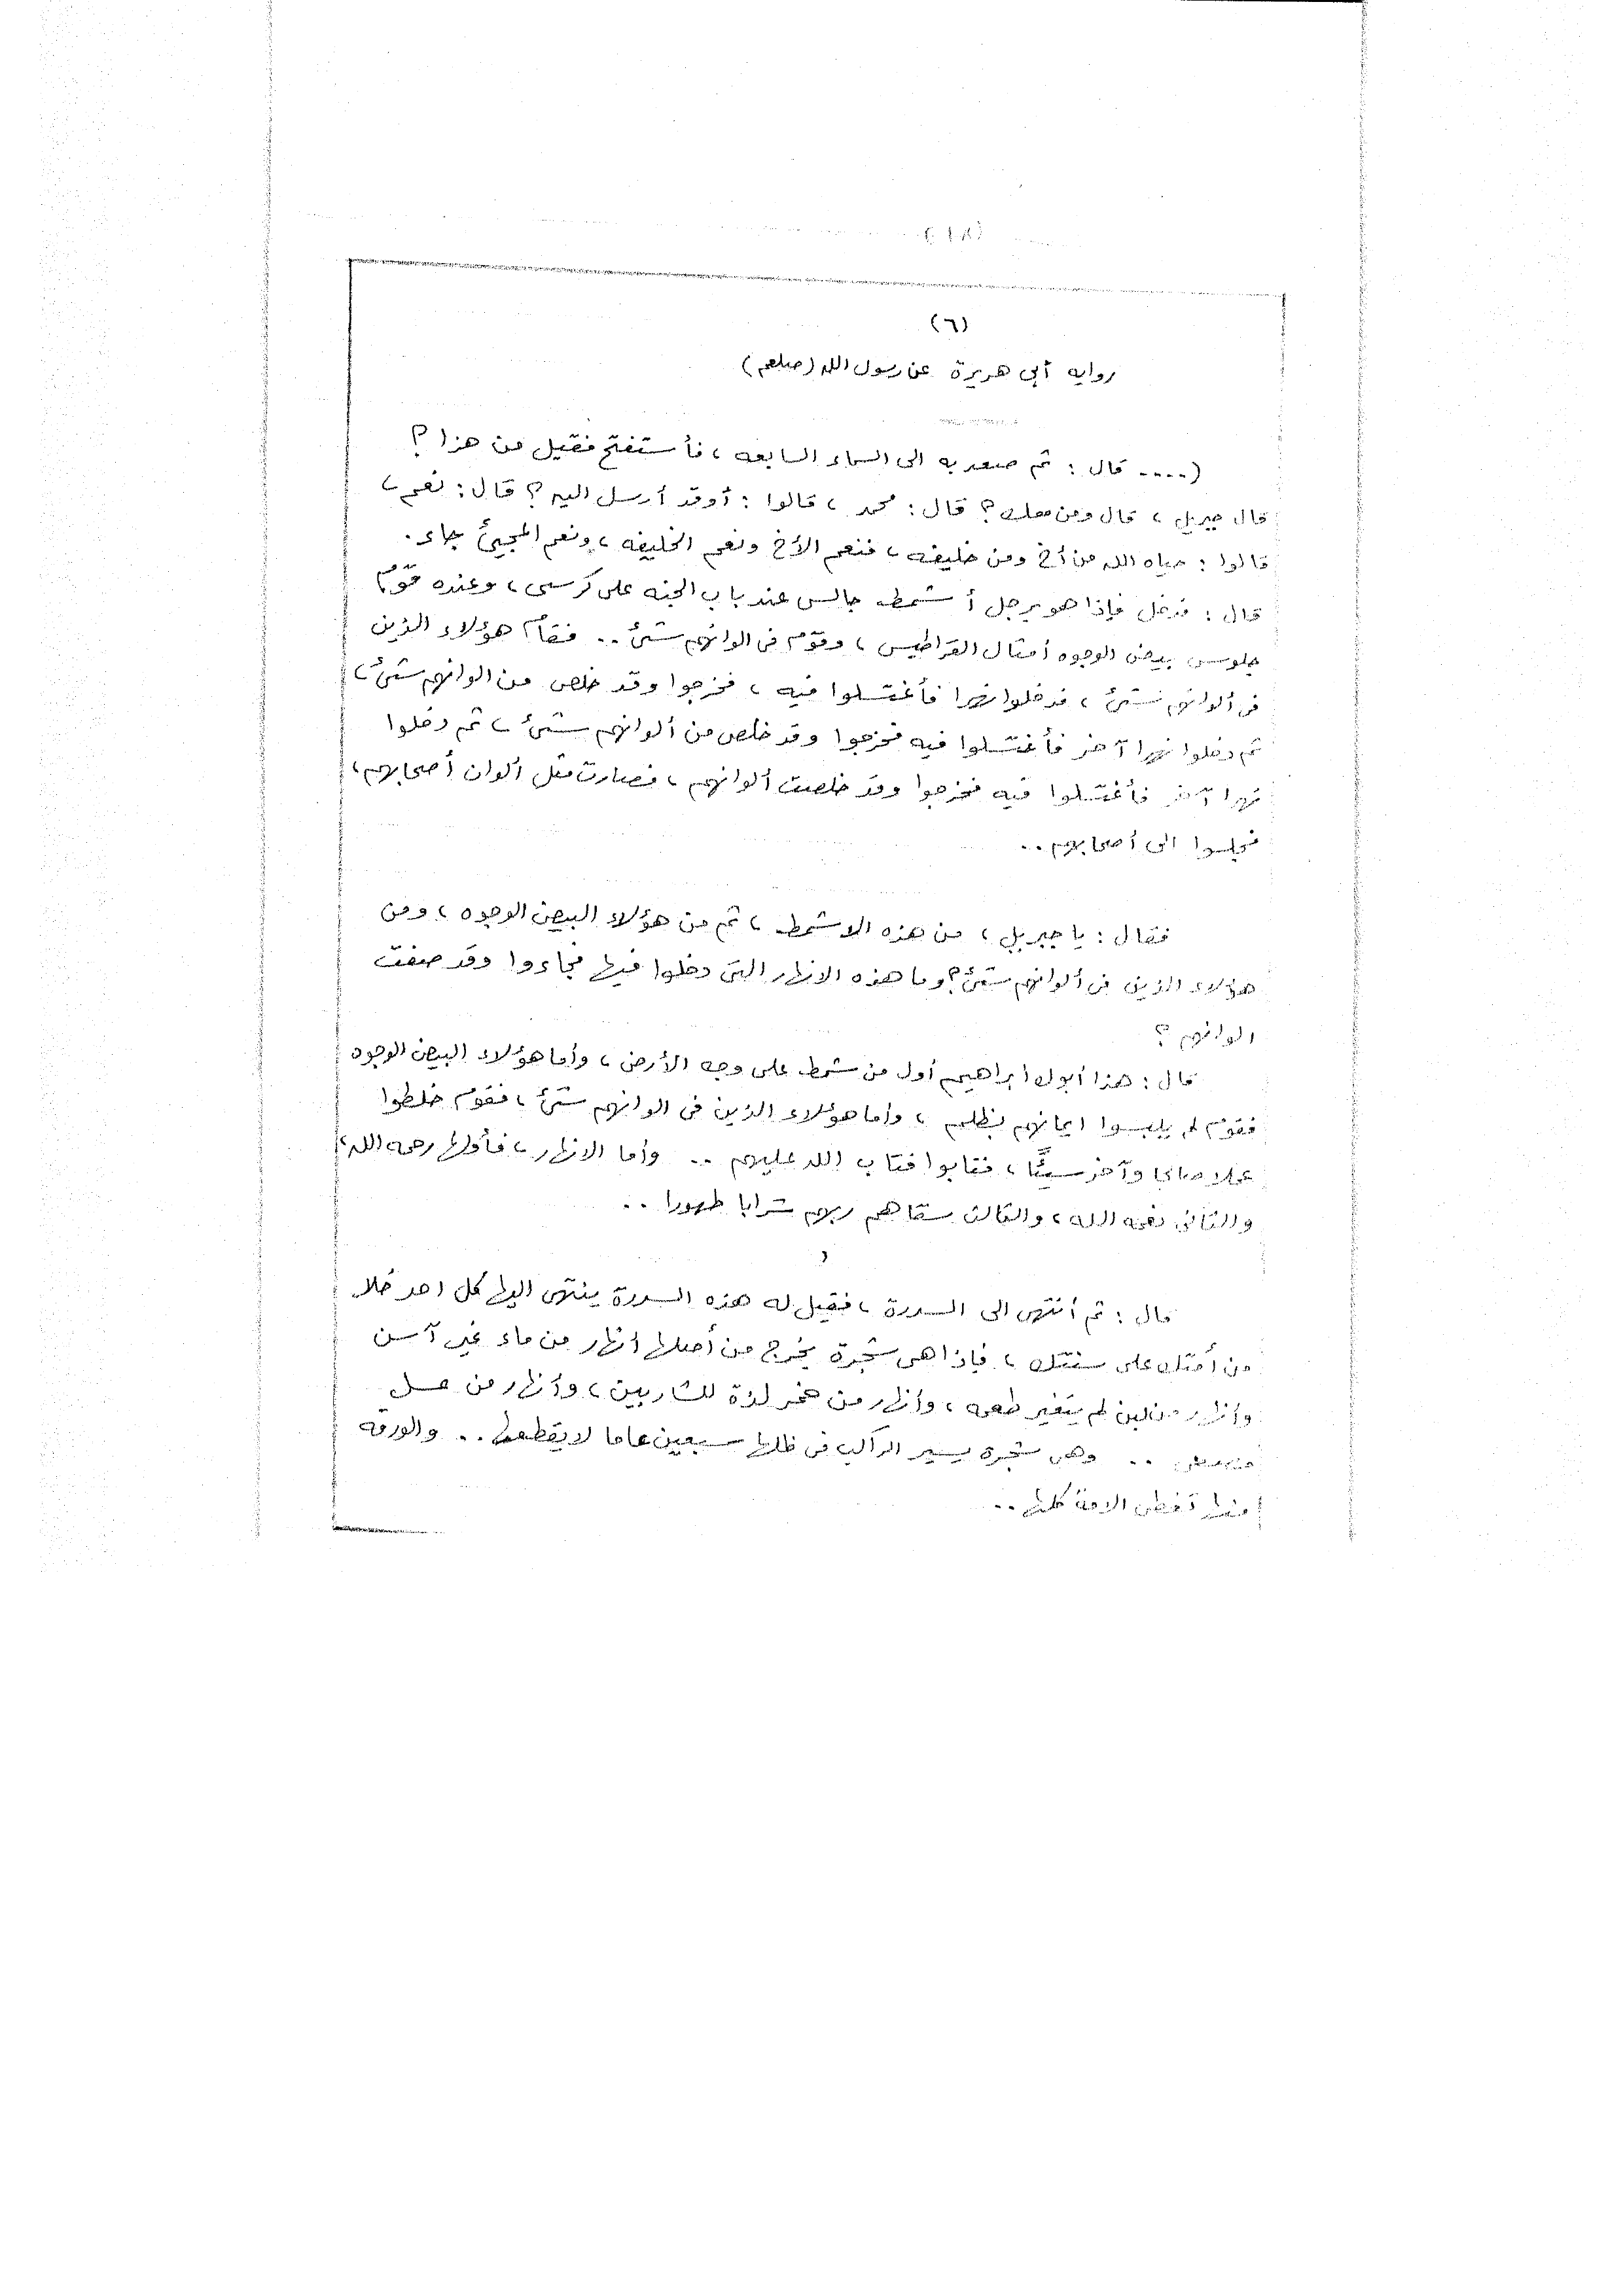 (٦)
روايه أبى هريرة عن رسول الله (صلعم)
(.... قال : ثم صعد به الى السماء السابعه ، فأستفتح فقيل من هذا ؟
قال جبريل ، قال ومن معك ؟ قال : محمد ، قالوا : أوقد أرسل اليه ؟ قال : نعم ،
قالوا : حياه الله من أخ ومن خليفه ، فنعم الأخ ونعم الخليفه ، ونعم المجيئ جاء .
قال : فدخل فإذا هو برجل أشمط جالس عند باب الجنه على كرسى ، وعنده قومٌ
جلوس بيض الوجوه أمثال القراطيس ، وقوم فى الوانهم شئ .. فقام هؤلاء الذين
فى ألوانهم شئ ، فدخلوا نهرا فأغتسلوا فيه ، فخرجوا وقد خلص من الوانهم شئ ،
ثم دخلوا نهرا آخر فأغتسلوا فيه فخرجوا وقد خلص من ألوانهم شئ ، ثم دخلوا
نهرا آخر فأغتسلوا فيه فخرجوا وقد خلصت ألوانهم ، فصارت مثل ألوان أصحابهم ،
فجلسوا الى أصحابهم ..
فقال : يا جبريل ، من هذه الاشمط ، ثم من هؤلاء البيض الوجوه ، ومن
هؤلاء الذين فى ألوانهم شئ ؟ وما هذه الانهار التى دخلوا فيها فجاءوا وقد صفت
الوانهم ؟
قال : هذا أبوك ابراهيم أول من شمط على وجه الأرض ، وأما هؤلاء البيض الوجوه
فقوم لم يلبسوا ايمانهم بظلم ، وأما هؤلاء الذين فى الوانهم شئ ، فقوم خلطوا
عملا صالحا وآخر سيئًا ، فتابوا فتاب الله عليهم .. وأما الانهار ، فأولها رحمه الله ،
والثانى نعمه الله ، والثالث سقاهم ربهم شرابا طهورا ..
قال : ثم أنتهى الى السدرة ، فقيل له هذه السدرة ينتهى اليها كل احد خلا
من أمتك على سنتك ، فإذا هى شجرة يخرج من أصلها أنهار من ماء غير آسن
وأنهار من لبن لم يتغير طعمه ، وأنهار من خمر لذة للشاربين ، وأنهار من عسل
مصفى .. وهى شجرة يسير الراكب فى ظلها سبعين عاما لا يقطعها .. والورقه
منها تغطى الامة كلها ..